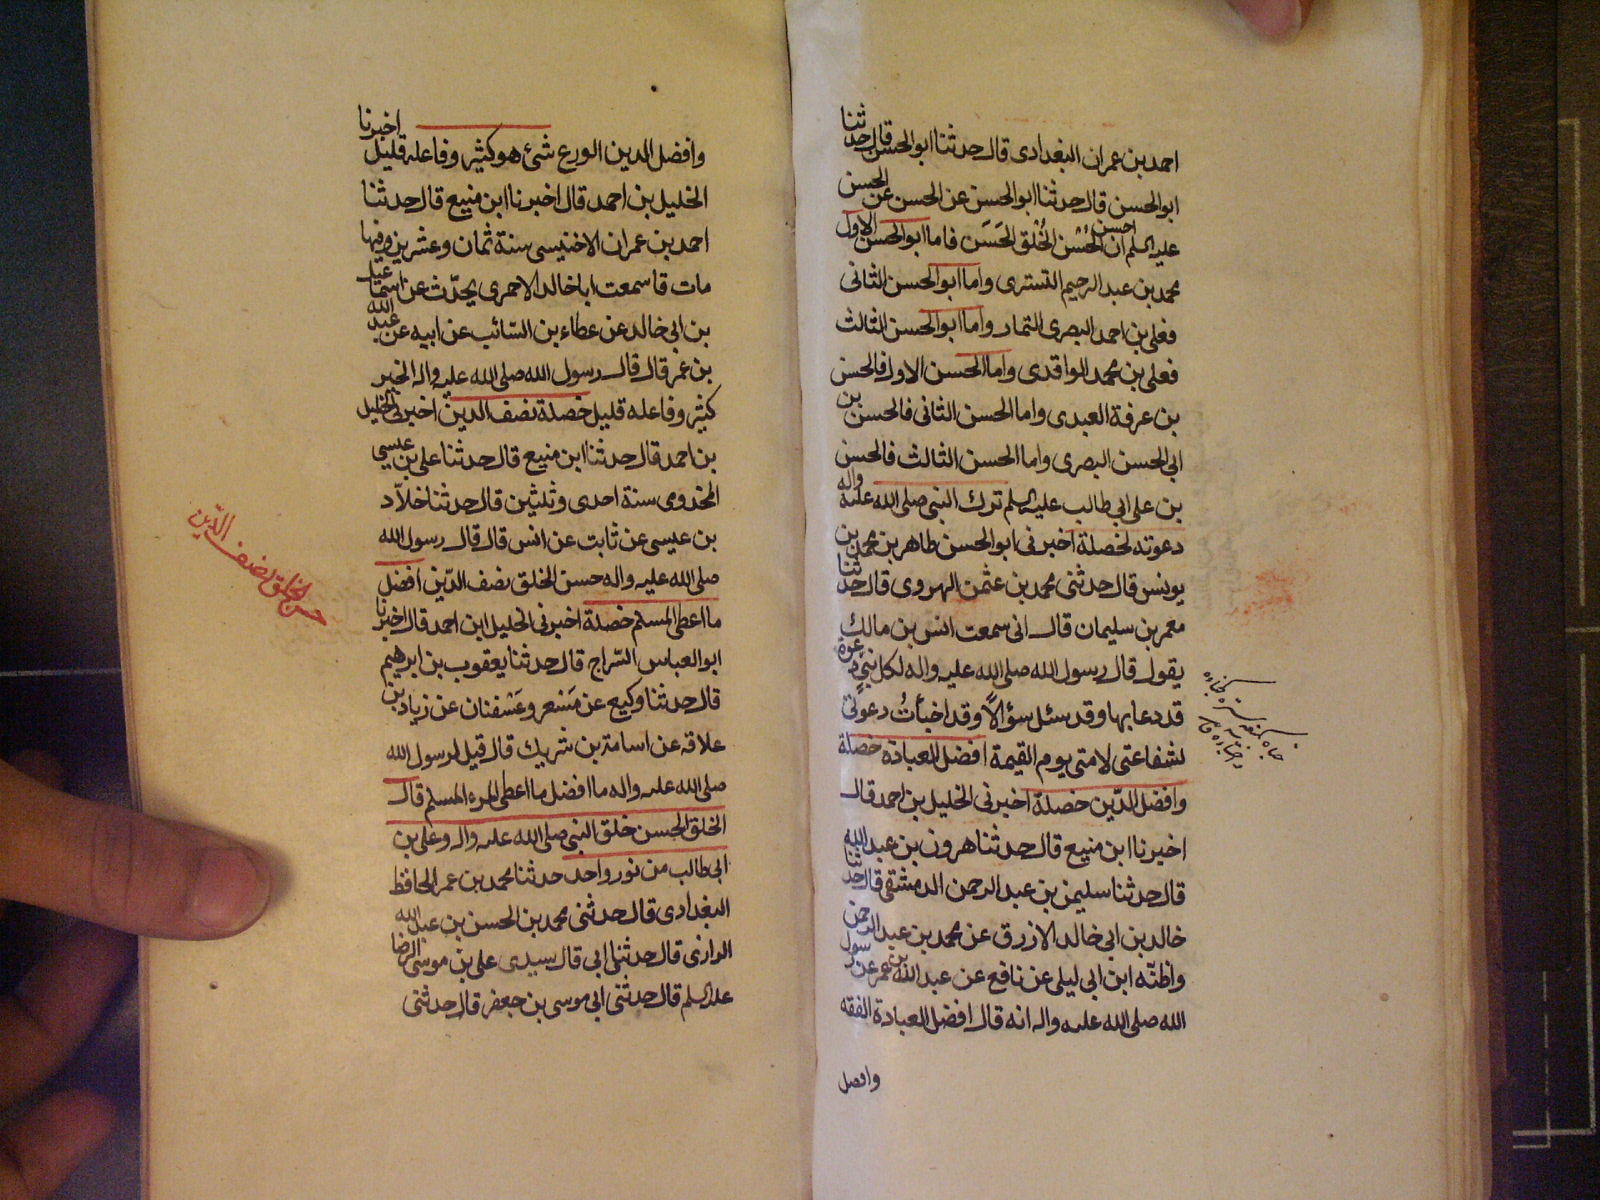 احمد بن عمران البغدادى قال حدثنا ابو الحسن قال حدثنا
ابو الحسن قال حدثنا ابو الحسن عن الحسن عن الحسن
عليه السلم ان احسن الحُسْن الخُلْق الحَسَن فاما ابو الحسن الاول
محمد بن عبد الرحيم التسترى واما ابو الحسن الثانى
فعلى بن احمد البصرى التمار واما ابو الحسن الثالث
فعلى بن محمد الواقدى واما الحسن الاول فالحسن
بن عرفة العبدى واما الحسن الثانى فالحسن بن
ابى الحسن البصرى واما الحسن الثالث فالحسن
بن على ابى طالب عليه السلم ترك النبى صلى الله عليه واله
دعوته لخصلة اخبرنى ابو الحسن طاهر بن محمد بن
يونس قال حدثنى محمد بن عثمن الهروى قال حدثنا
معمر بن سليمان قال انى سمعت انس بن مالك
يقول قال رسول الله صلى الله عليه واله لكل نبىٍ دعوة
قد دعا بها وقد سئل سؤالاً وقد اخبأتُ دعوتى
لشفاعتى لامتى يوم القيمة افضل العبادة خصلة
وافضل الدّين خصلة اخبرنى الخليل بن احمد قال
اخبرنا ابن منيع قال حدثنا هرون بن عبد الله
قال حدثنا سليمن بن عبد الرحمن الدمشقى قال حدثنا
خالد بن ابى خالد الازرق عن محمد بن عبد الرحمن
واظنّه ابن ابى ليلى عن نافع عن عبد الله بن عمر عن رسول
الله صلى الله عليه واله انه قال افضل العبادة الفقه
وافضل
وافضل الدين الورع شئ هو كثير وفاعله قليل اخبرنا
الخليل بن احمد قال اخبرنا ابن منيع قال حدثنا
احمد بن عمران الاخنيسى سنة ثمان وعشرين وفيها
مات قا سمعت ابا خالد الاحمرى يحدّث عن اسمعيل
بن ابى خالد عن عطاء بن السّائب عن ابيه عن عبد الله
بن عمر قال قال رسول الله صلى الله عليه واله الخير
كثير وفاعله قليل خصلة نصف الدين اخبرنى الخليل
بن احمد قال حدثنا ابن منيع قال حدثنا على بن عيسى
المخدومى سنة احدى وثلثين قال حدثنا خلاّد
بن عيسى عن ثابت عن انس قال قال رسول الله
صلى الله عليه واله حسن الخلق نصف الدّين افضل
ما اعطى المسلم خصلة اخبرنى الخليل ابن احمد قال اخبرنا
ابو العباس السّراج قال حدثنا يعقوب بن ابرهيم
قال حدثنا وكيع عن مَسْعر وعَشفنان عن زياد بن
علاقه عن اسامة بن شريك قال قيل لرسول الله
صلى الله عليه واله ما افضل ما اعطى المرء المسلم قال
الخلق الحسن خلق النبى صلى الله عليه واله وعلى بن
ابى طالب من نور واحد حدثنا محمد بن عمر الحافظ
البغدادى قال حدثنى محمد بن الحسن بن عبد الله
الرازى قال حدثنى ابى قال سيدى على بن موسى الرضا
عليه السلم قال حدثنى ابى موسى بن جعفر قال حدثنى
حسن الخلق نصف الدّين